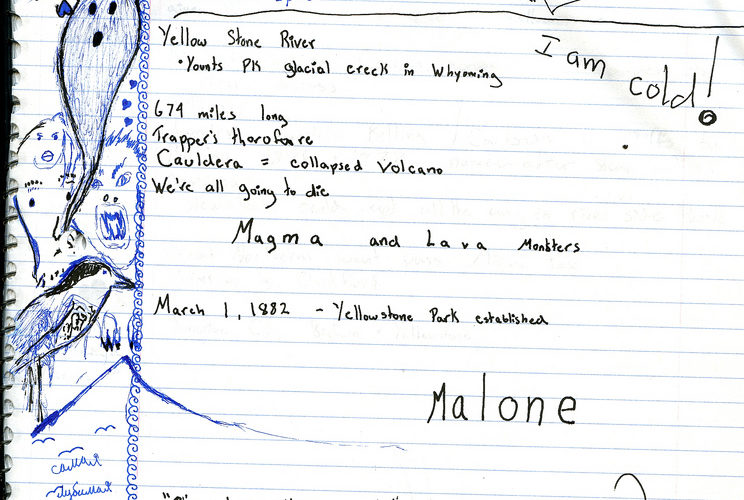 Yellow Stone River
I am cold!
• Younts PK glacial creek in Whyoming
674 miles long
Trapper's thorofare
Cauldera = collapsed Volcano
We're all going to die
Magma and Lava Monsters
March 1, 1882 - Yellowstone Park established
Malone
самая
любимая